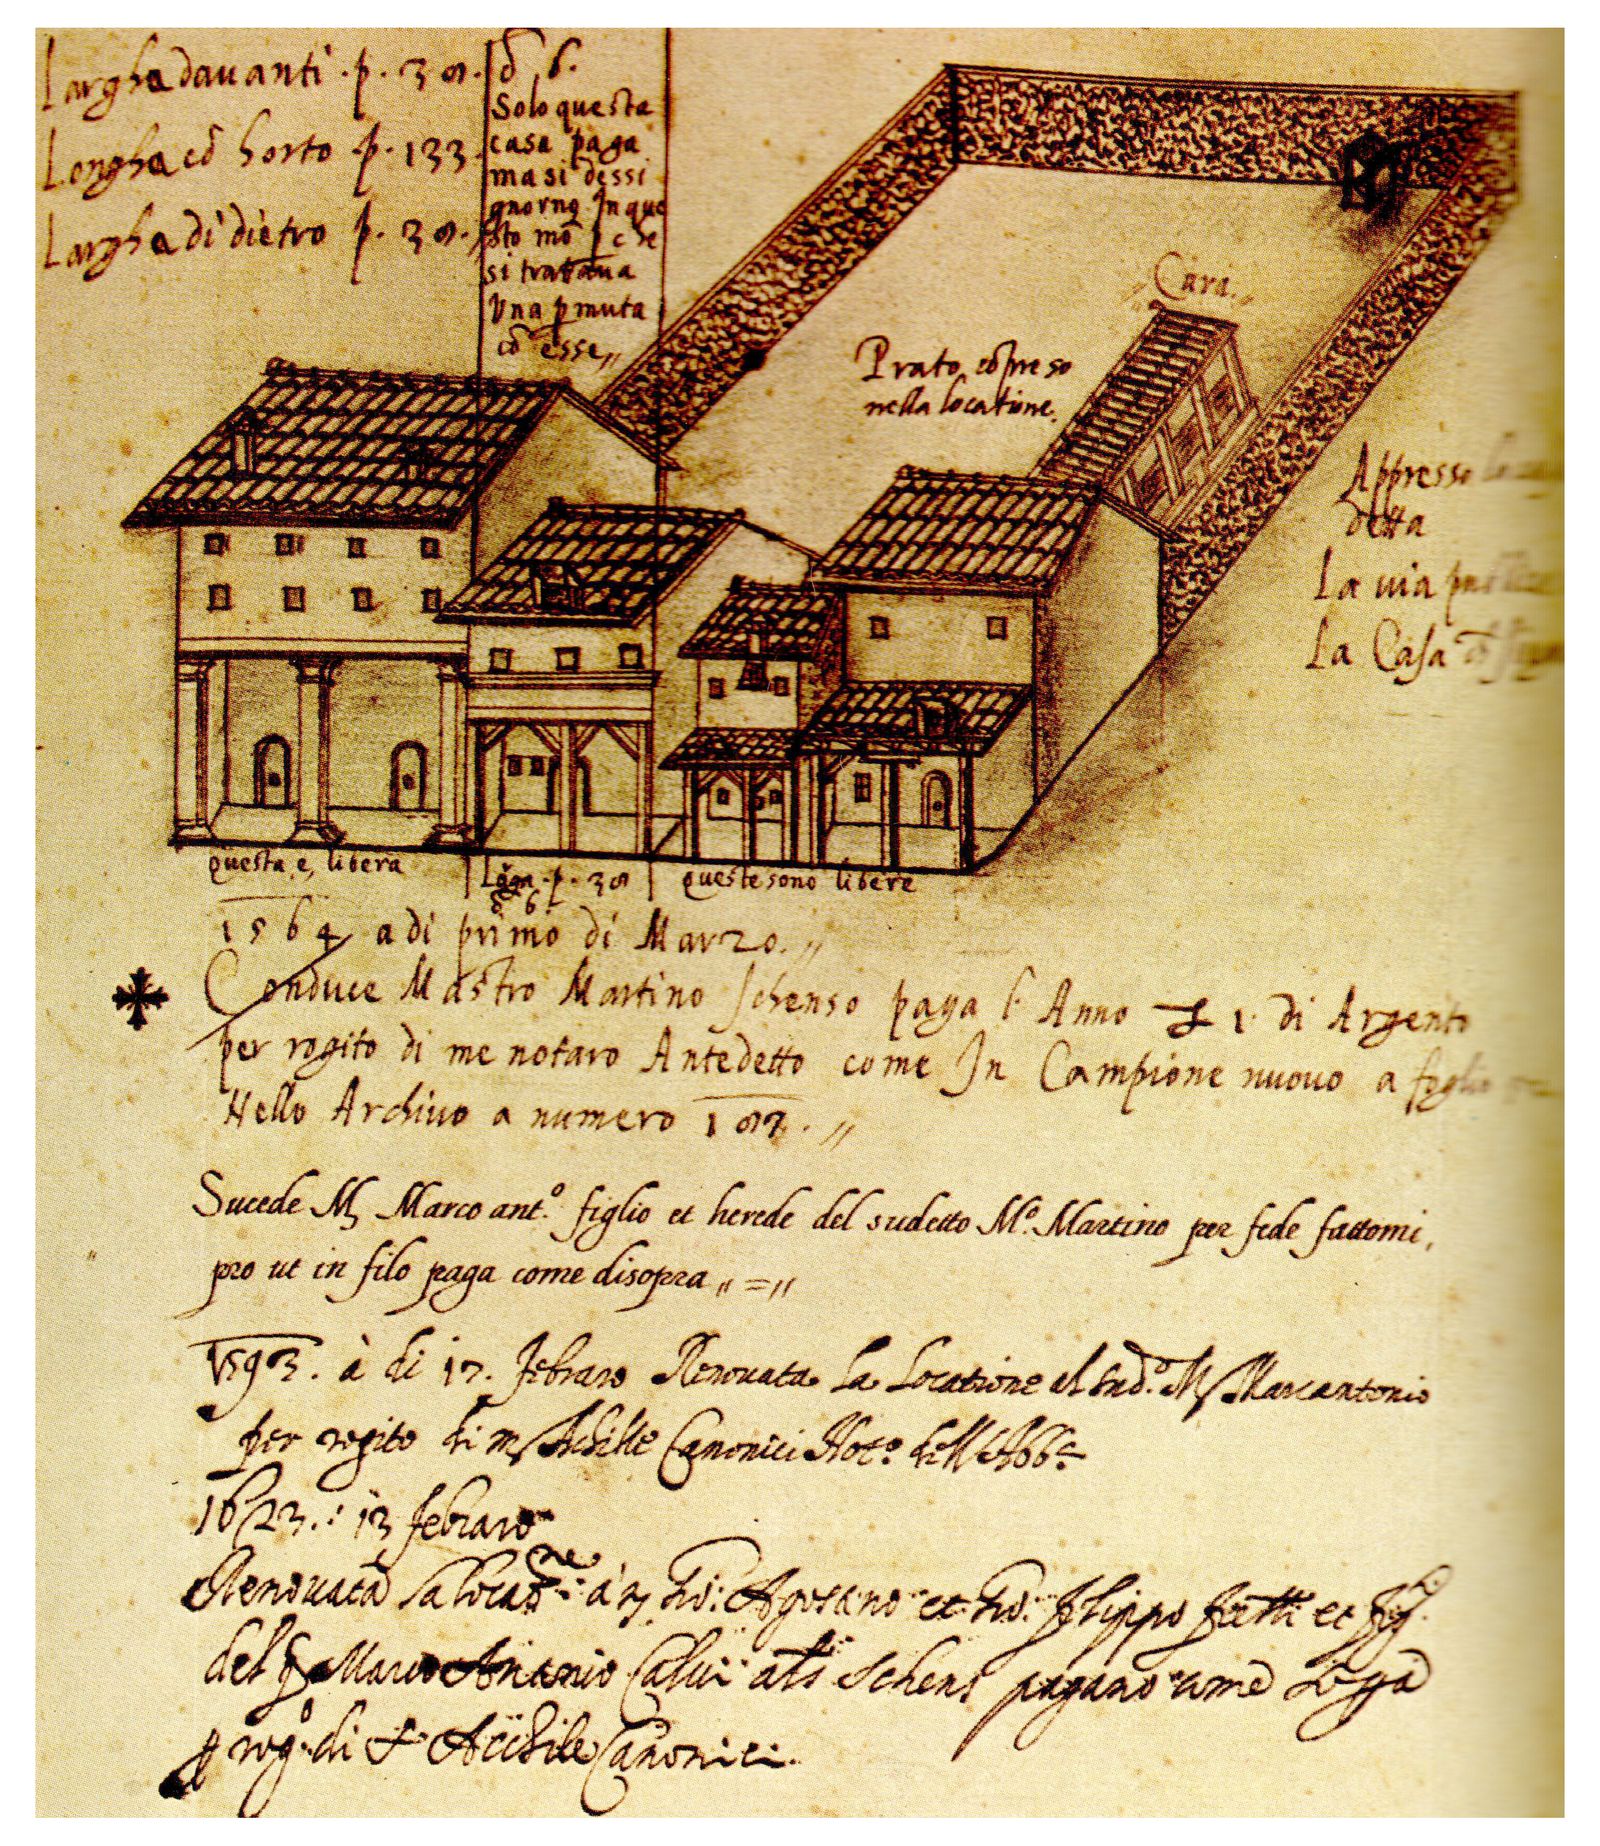 Largha dauanti . p . 38 .
Longha cō horto p . 133 .
Largha di dietro p . 38 .
ō 6 .
Solo questa
casa paga
ma si dessi
gnorno In que
sto mō p che
si tratāua
Vna pmuta
cō esse,,
,, Cara. ,,
Prato cōpreso
nella locatione.
Appresso
detta
La uia
La Casa
questa e, libera
Larga . p . 38
ō 6
queste sono libere
1564 a di primo di Marzo. ,,
Conduce Mastro Martino Schenso paga l' Anno 1 . di Argento
per rogito di me notaro Antedetto come In Campione nuouo a foglio
Nello Archiuo a numero 187 . ,,
Sucede M Marco ant.º figlio et herede del sudetto Mº. Martino per fede fattomi,
pro ut in filo paga come disopra ,, = ,,
1593 . à di 17 . febraro Renouata La Locatione al sud.º M Marcantonio
per rogito di m Achille Canonici Not.º dell Abb.ª
1623 . : 13 febraro
Renouata la locaō.ne à Agostino et Filippo fratti et
del Marco Antonio Calui als Schensi pagano come
rog.º di Achile Canonici .